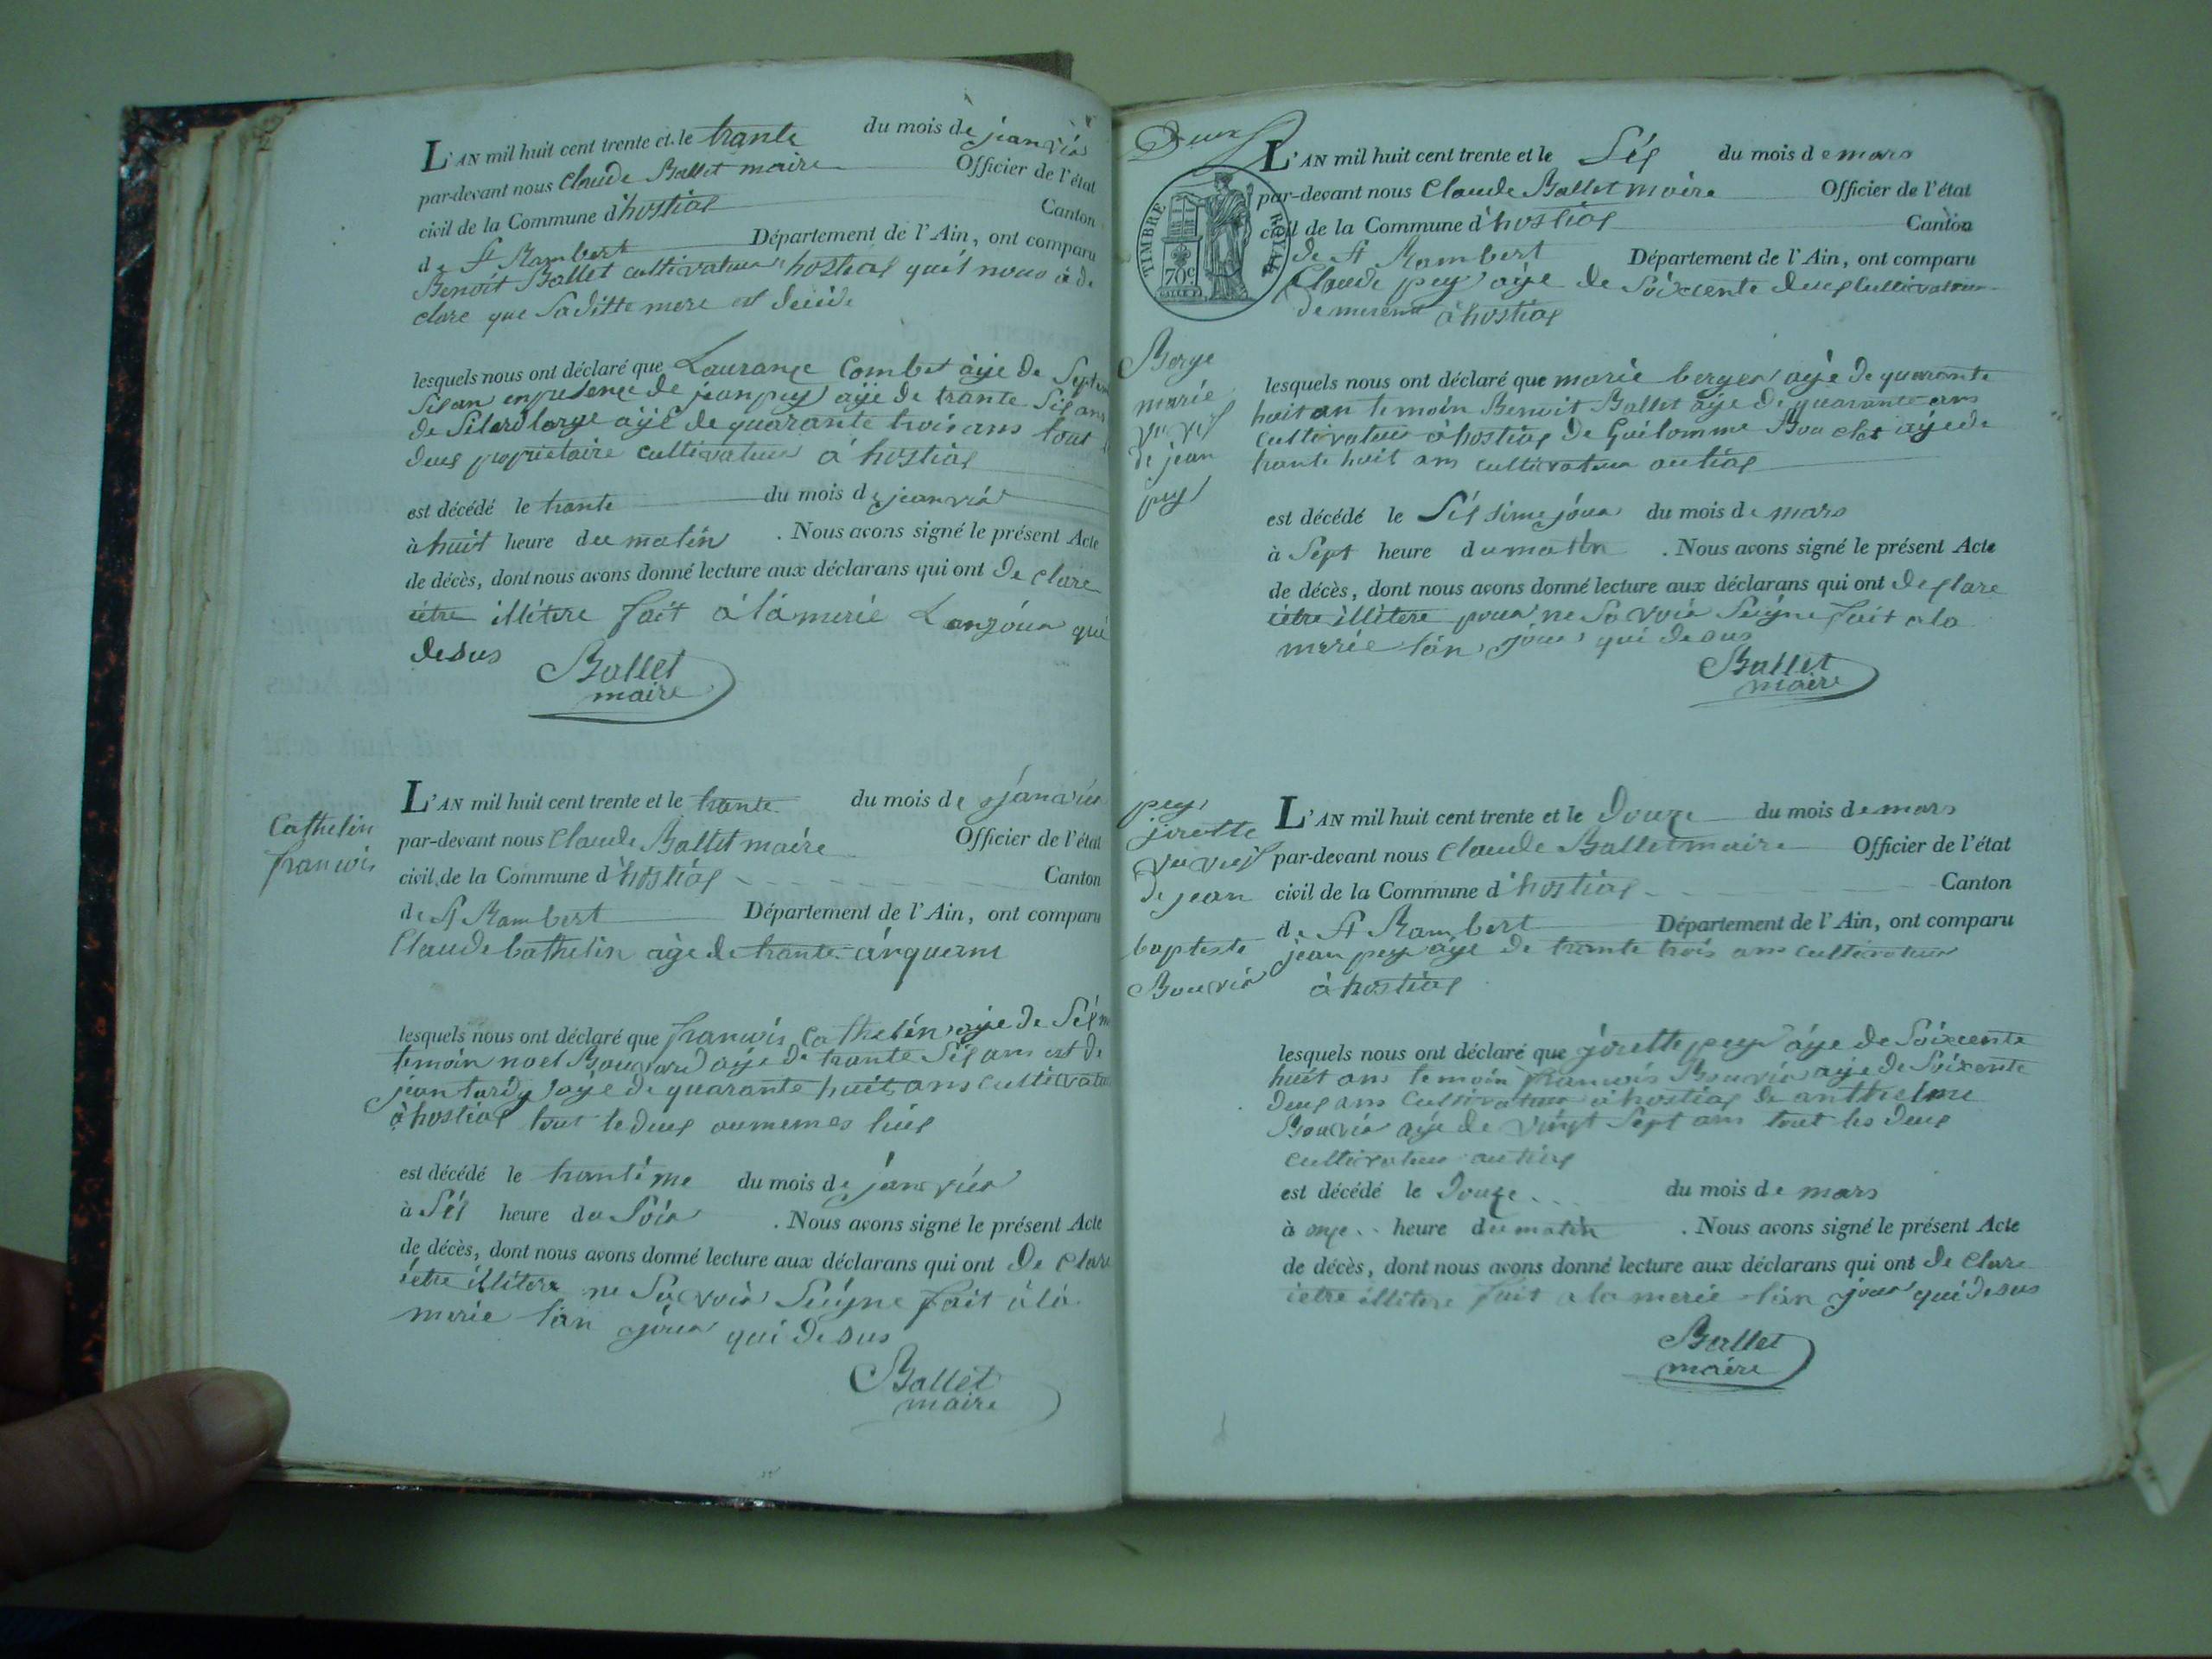 L'AN mil huit cent trente et le trante du mois de jeanviér
par-devant nous Claude Ballet maire Officier de l'état
civil de la Commune d'hostias Canton
de St Rambert Département de l'Ain, ont comparu
Benoit Ballet cultivateur hostias quil nous à de
clare que Saditte mere est decéde
lesquels nous ont déclaré que Laurance Combet àije de
Sis an en presence de jean pey aije de trante Sis ans
de large aijé de quarante trois ans tout
deus proprietaire cultivateur à hostias
est décédé le trante du mois de jeanviér
à huit heure du matin . Nous avons signé le présent Acte
de décès, dont nous avons donné lecture aux déclarans qui ont de clare
ietre illétere fait à là merie Lan jour qui
desus
Ballet
maire
Cathelin
francois
L'AN mil huit cent trente et le trante du mois de janviér
par-devant nous Claude Ballet maire Officier de l'état
civil de la Commune d'hostias Canton
de St Rambert Département de l'Ain, ont comparu
Claude Cathelin àije de trante
lesquels nous ont déclaré que francois Cathelin aije de Sis
temoin noel aije de trante Sis ans et de
jean tardy aije de quarante huit ans cultivateur
à hostias tout le deus aumemes liéu
est décédé le trantiéme du mois de janviér
à Sis heure du Soir . Nous avons signé le présent Acte
de décès, dont nous avons donné lecture aux déclarans qui ont de clare
ietre illitere ne Savoir Séigne fait à là
merie lan jour qui desus
Ballet
maire
Deus
TIMBRE ROYAL
70c
L'AN mil huit cent trente et le Sis du mois de mars
par-devant nous Claude Ballet maire Officier de l'état
civil de la Commune d'hostias Canton
de St Rambert Département de l'Ain, ont comparu
Claude pey aije de Soixcente deus cultivateur
demeurent à hostias
Berge
marie
de jean
pey
lesquels nous ont déclaré que marie berger aije de quarante
huit an temoin Benoit Ballet aije de quarante ans
cultivateur à hostias de Guilomme aijede
trante huit ans cultivateur
est décédé le Sissime jour du mois de mars
à Sept heure du matin . Nous avons signé le présent Acte
de décès, dont nous avons donné lecture aux déclarans qui ont de clare
ietre illitere pour ne Savoir Seigne fait ala
merie lan jour qui desus
Ballet
maire
pey
de jean
baptiste
Bouviér
L'AN mil huit cent trente et le Douze du mois de mars
par-devant nous Claude Ballet maire Officier de l'état
civil de la Commune d'hostias Canton
de St Rambert Département de l'Ain, ont comparu
jean pey aije de trante trois ans cultivateur
à hostias
lesquels nous ont déclaré que pey aije de Soixcente
huit ans temoin francois Bouviér aije de Soixente
deus ans cultivateur à hostias de anthelme
Bouviér aije de vingt Sept ans tout les deus
cultivateur
est décédé le Douze du mois de mars
à onze heure du matin . Nous avons signé le présent Acte
de décès, dont nous avons donné lecture aux déclarans qui ont de clare
ietre illitere fait a la merie lan jour qui desus
Ballet
maire